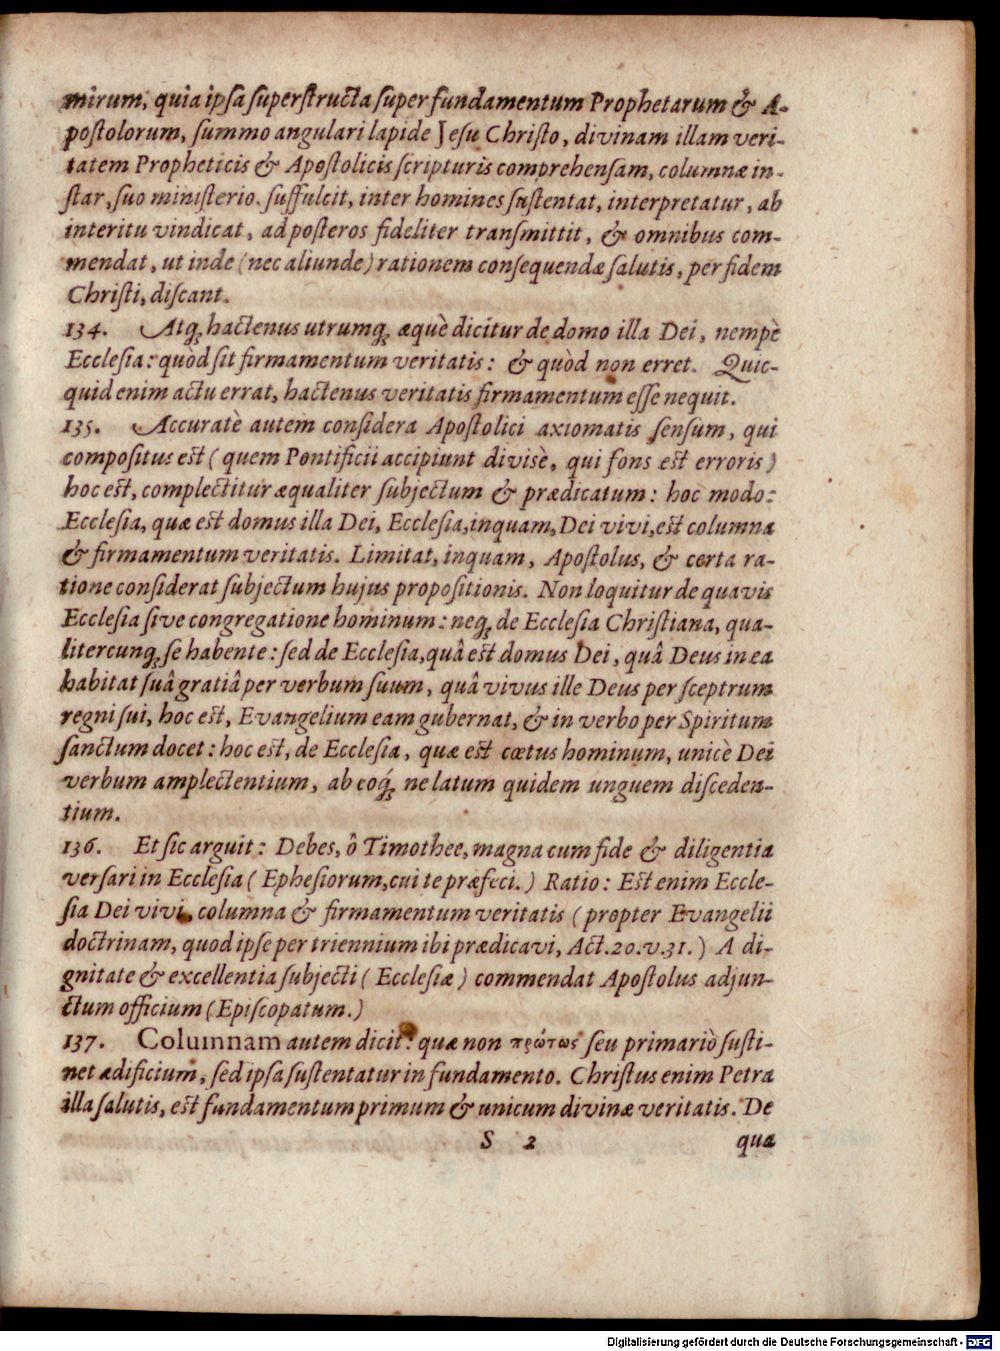 mirum, quia ipsa superstructa super fundamentum Prophetarum & A-
postolorum, summo angulari lapide Jesu Christo, divinam illam veri-
tatem Propheticis & Apostolicis scripturis comprehensam, columnæ in-
star, suo ministerio. suffulcit, inter homines sustentat, interpretatur, ab
interitu vindicat, ad posteros fideliter transmittit, & omnibus com-
mendat, ut inde (nec aliunde) rationem consequendæ salutis, per fidem
Christi, discant.
134. Atq; hactenus utrumq; æquè dicitur de domo illa Dei, nempè
Ecclesia: quòd sit firmamentum veritatis: & quòd non erret. Quic-
quid enim actu errat, hactenus veritatis firmamentum esse nequit.
135. Accuratè autem considera Apostolici axiomatis sensum, qui
compositus est (quem Pontificii accipiunt divisè, qui fons est erroris)
hoc est, complectitur æqualiter subjectum & prædicatum: hoc modo:
Ecclesia, quæ est domus illa Dei, Ecclesia, inquam, Dei vivi, est columna
& firmamentum veritatis. Limitat, inquam, Apostolus, & certa ra-
tione considerat subjectum hujus propositionis. Non loquitur de quavis
Ecclesia sive congregatione hominum: neq; de Ecclesia Christiana, qua-
litercunq; se habente: sed de Ecclesia, quâ est domus Dei, quâ Deus in ea
habitat suâ gratiâ per verbum suum, quâ vivus ille Deus per sceptrum
regni sui, hoc est, Evangelium eam gubernat, & in verbo per Spiritum
sanctum docet: hoc est, de Ecclesia, quæ est cœtus hominum, unicè Dei
verbum amplectentium, ab eoq́; ne latum quidem unguem disceden-
tium.
136. Et sic arguit: Debes, ô Timothee, magna cum fide & diligentia
versari in Ecclesia (Ephesiorum, cui te præfeci.) Ratio: Est enim Eccle-
sia Dei vivi, columna & firmamentum veritatis (propter Evangelii
doctrinam, quod ipse per triennium ibi prædicavi, Act. 20. v. 31.) A di-
gnitate & excellentia subjecti (Ecclesiæ) commendat Apostolus adjun-
ctum officium (Episcopatum.)
137. Columnam autem dicit: quæ non πρώτως seu primariò susti-
net ædificium, sed ipsa sustentatur in fundamento. Christus enim Petra
illa salutis, est fundamentum primum & unicum divinæ veritatis. De
S 2 qua
Digitalisierung gefördert durch die Deutsche Forschungsgemeinschaft - DFG